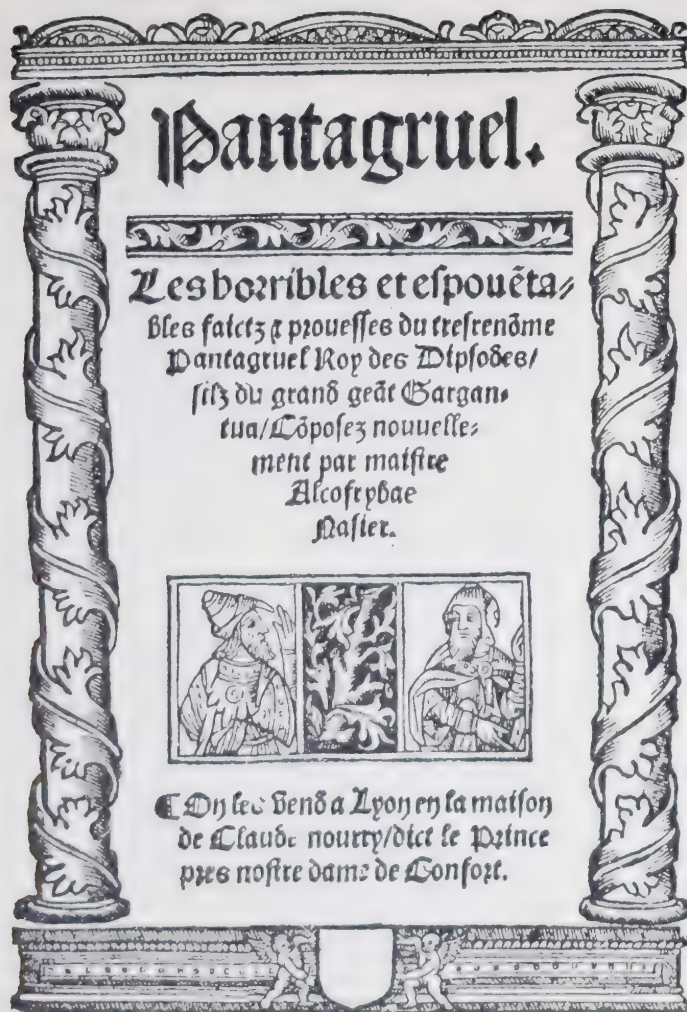 Pantagruel.
Les horribles et espouẽta⸗
bles faictz ⁊ prouesses du tresrenõme
Pantagruel Roy des Dipsodes/
filz du grand geãt Gargan⸗
tua/Cõposez nouuelle⸗
ment par maistre
Alcofrybas
Nasier.
¶ On les vend a Lyon en la maison
de Claude nourry/dict le Prince
pres nostre dame de Confort.